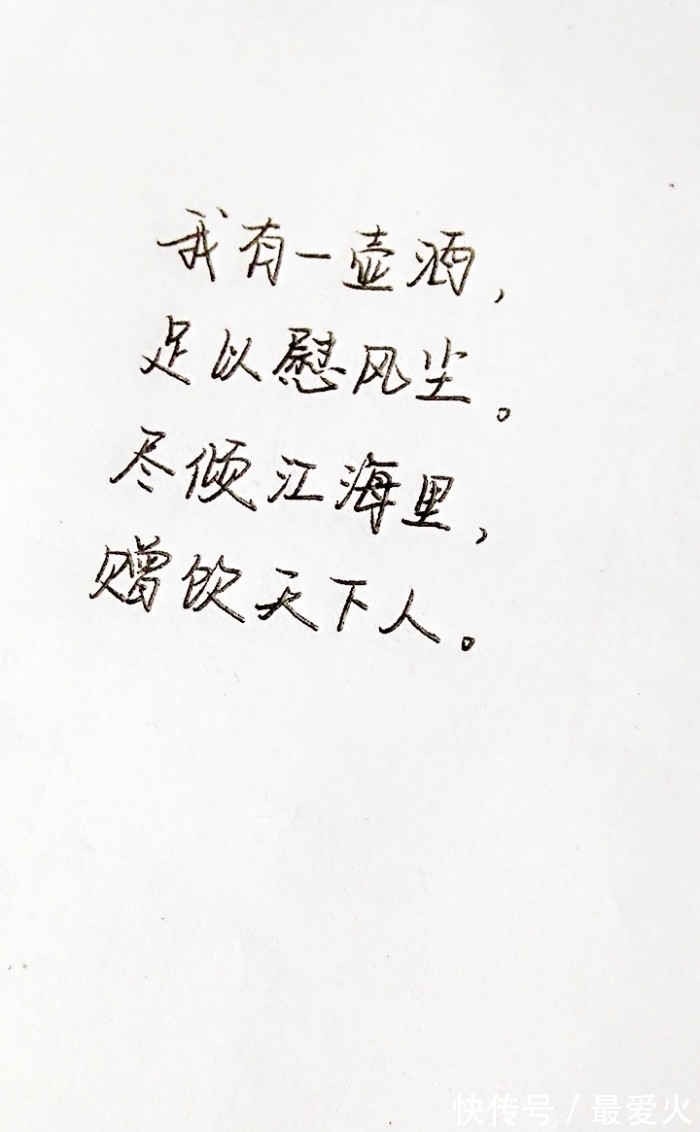 我有一壶酒,
足以慰风尘。
尽倾江海里,
赠饮天下人。
快传号/最爱火